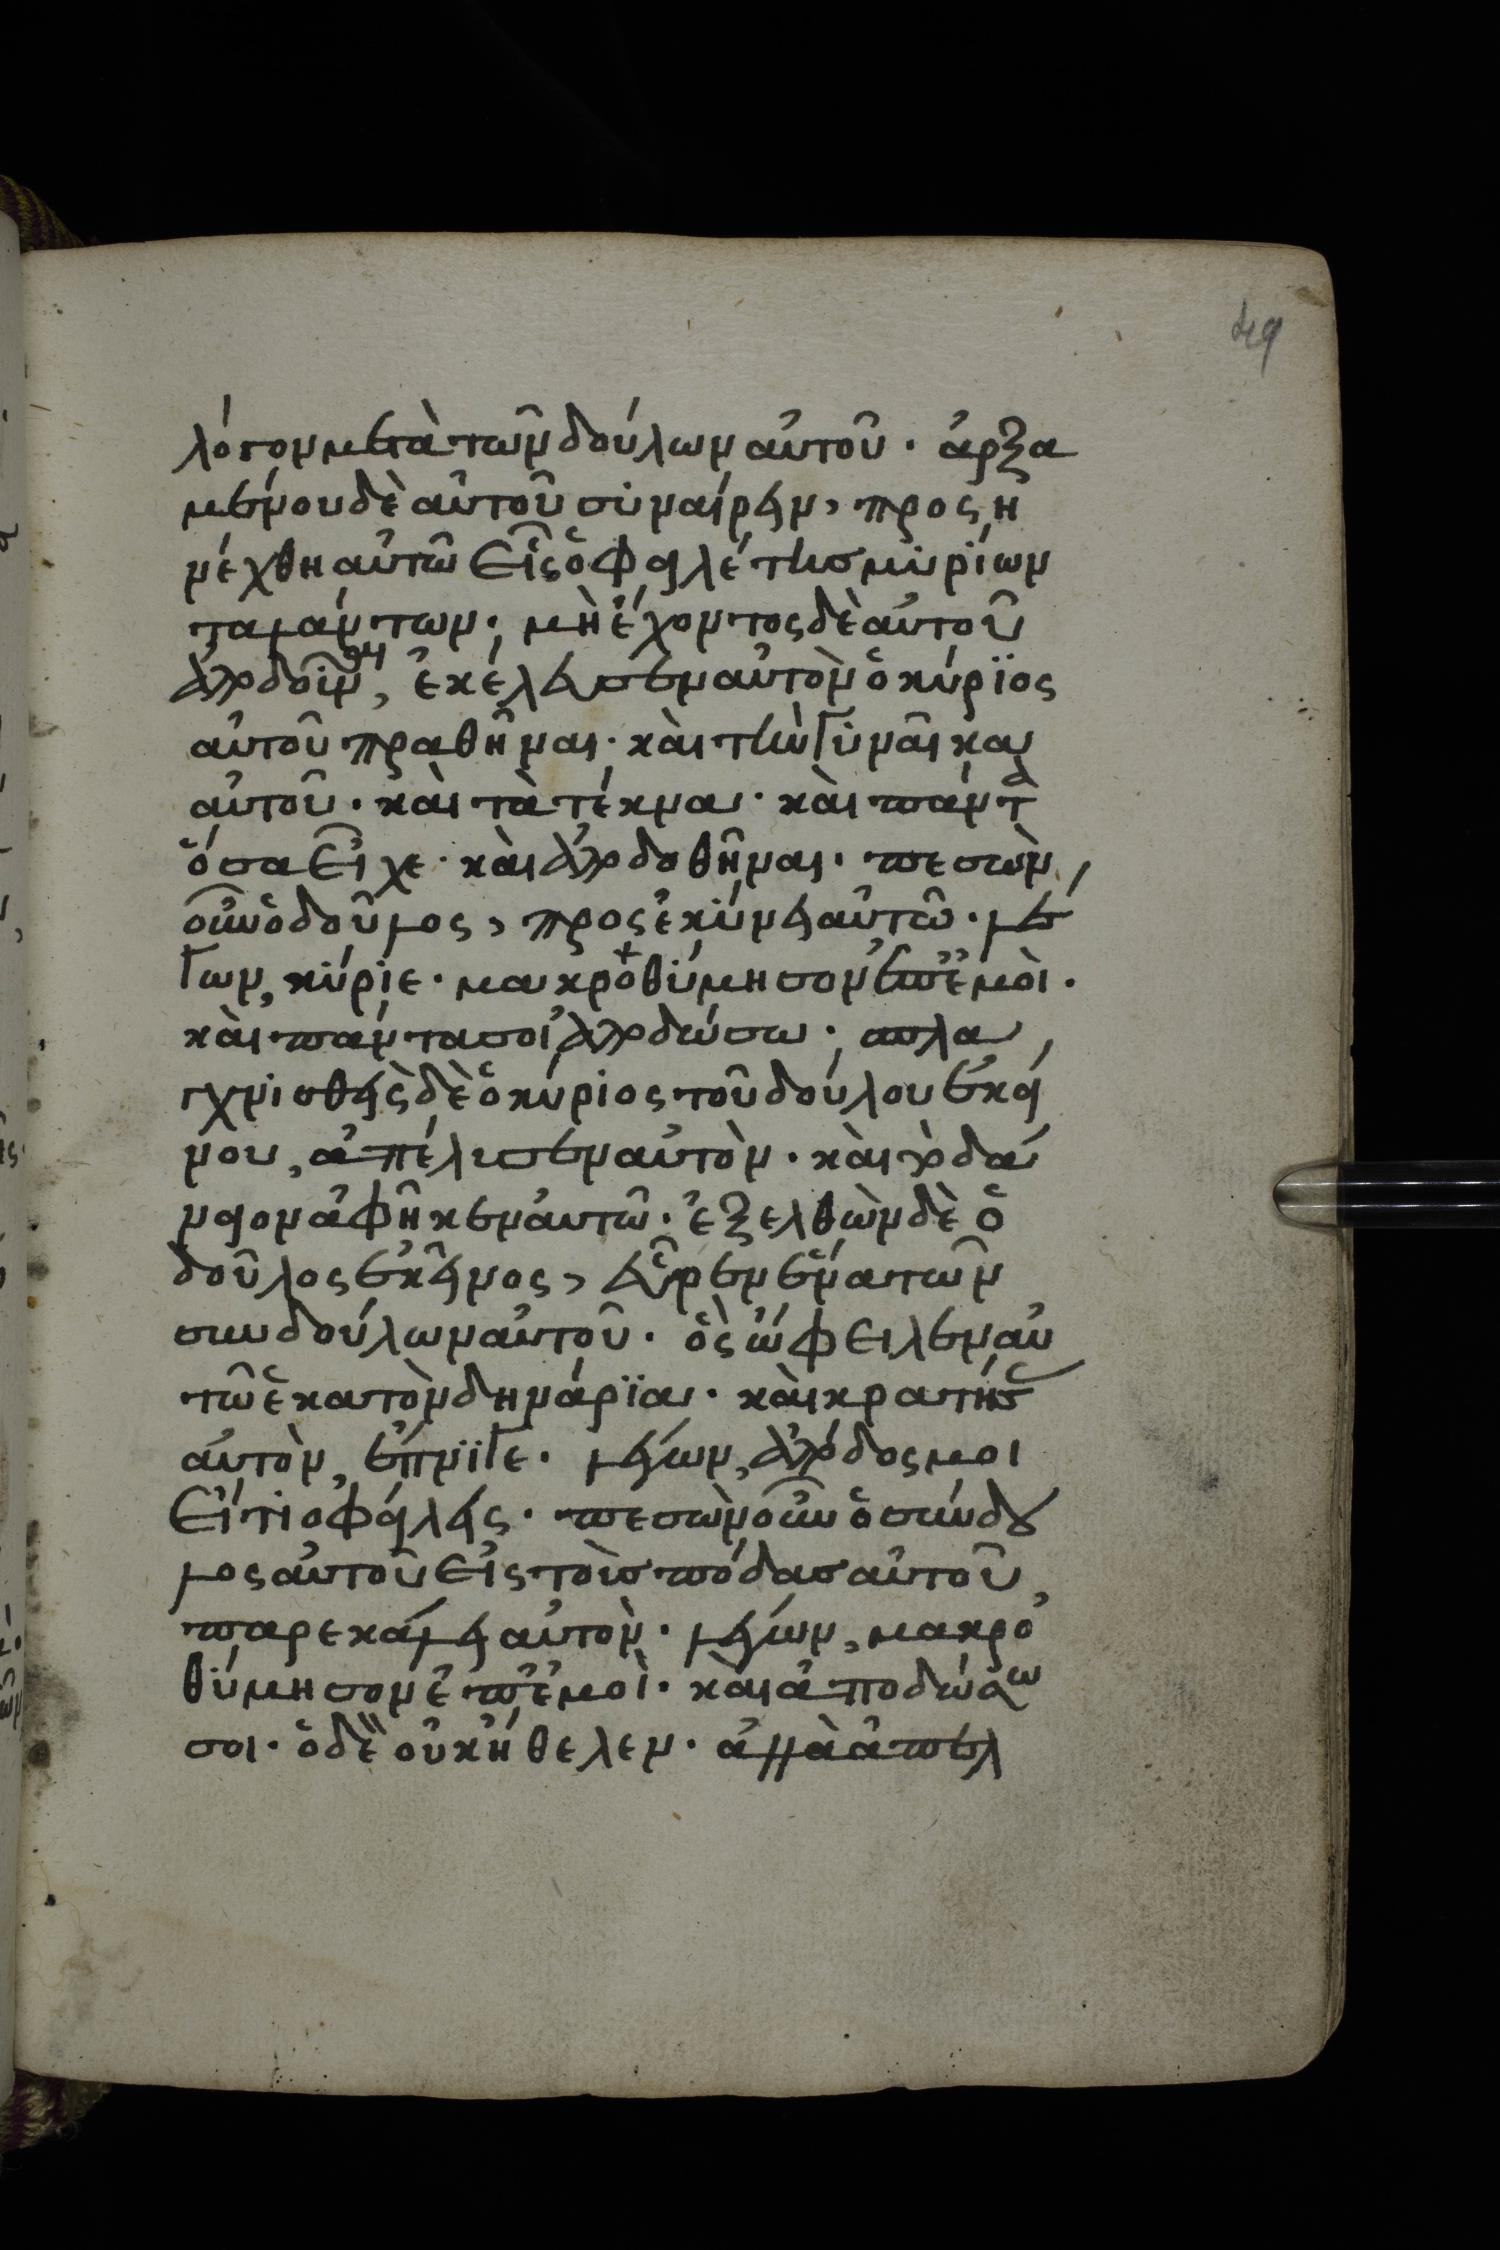 49
λόγον μετὰ τῶν δούλων αὐτοῦ · ἀρξα
μένου δὲ αὐτοῦ συναίρειν, προσἠ
νέχθη αὐτῶ εἷς ὀφειλέτης μυρίων
ταλάντων · μὴ ἔχοντος δὲ αὐτοῦ
ἀποδοῦναι, ἐκέλευσεν αὐτὸν ὁ κύριος
αὐτοῦ πραθῆναι · καὶ τὴν γυναῖκα
αὐτοῦ · καὶ τὰ τέκνα · καὶ πάντα
ὅσα εἶχε · καὶ ἀποδοθῆναι · πεσὼν
οὖν ὁ δοῦλος, προσεκύνει αὐτῶ · λέ
γων, κύριε · μακροθύμησον ἐπ' ἐμοὶ ·
καὶ πάντα σοι ἀποδώσω · σπλα
γχνισθεὶς δὲ ὁ κύριος τοῦ δούλου ἐκεί
νου, ἀπέλυσεν αὐτὸν · καὶ τὸ δά
νειον ἀφῆκεν αὐτῶ · ἐξελθὼν δὲ ὁ
δοῦλος ἐκεῖνος, εὗρεν ἕνα τῶν
συνδούλων αὐτοῦ · ὃς ὤφειλεν αὐ
τῶ ἑκατὸν δηνάρϊα · καὶ κρατήσας
αὐτὸν, ἔπνϊγε · λέγων, ἀπόδος μοι
εἴ τι ὀφείλεις · πεσὼν οὖν ὁ σύνδου
λος αὐτοῦ εἰς τοὺς πόδας αὐτοῦ,
παρεκάλει αὐτὸν · λέγων, μακρο
θύμησον ἐπ' ἐμοὶ · καὶ ἀποδώσω
σοι · ὁ δὲ οὐκ ἤθελεν · ἀλλὰ ἀπελ